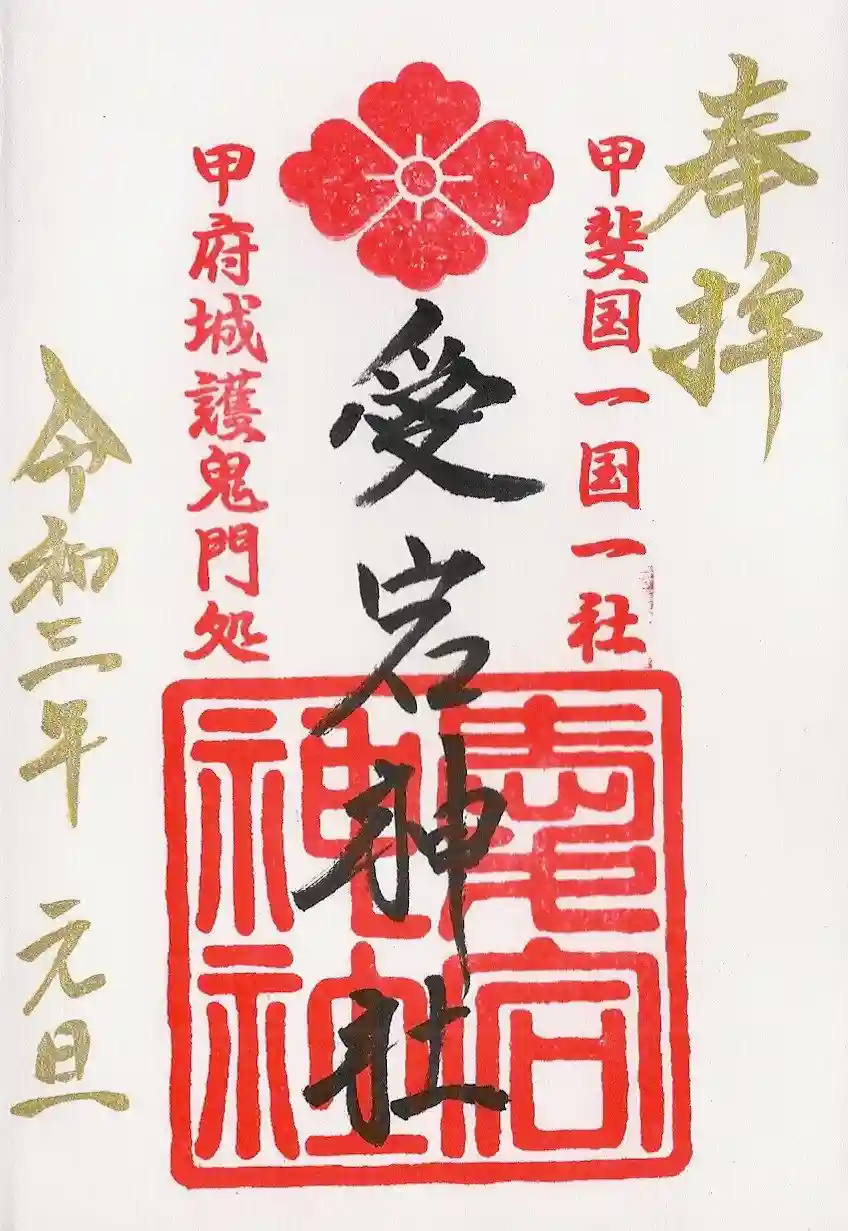 奉拝
甲斐国一国一社
愛宕神社
甲府城護鬼門処
令和三年 元旦
愛宕
神社